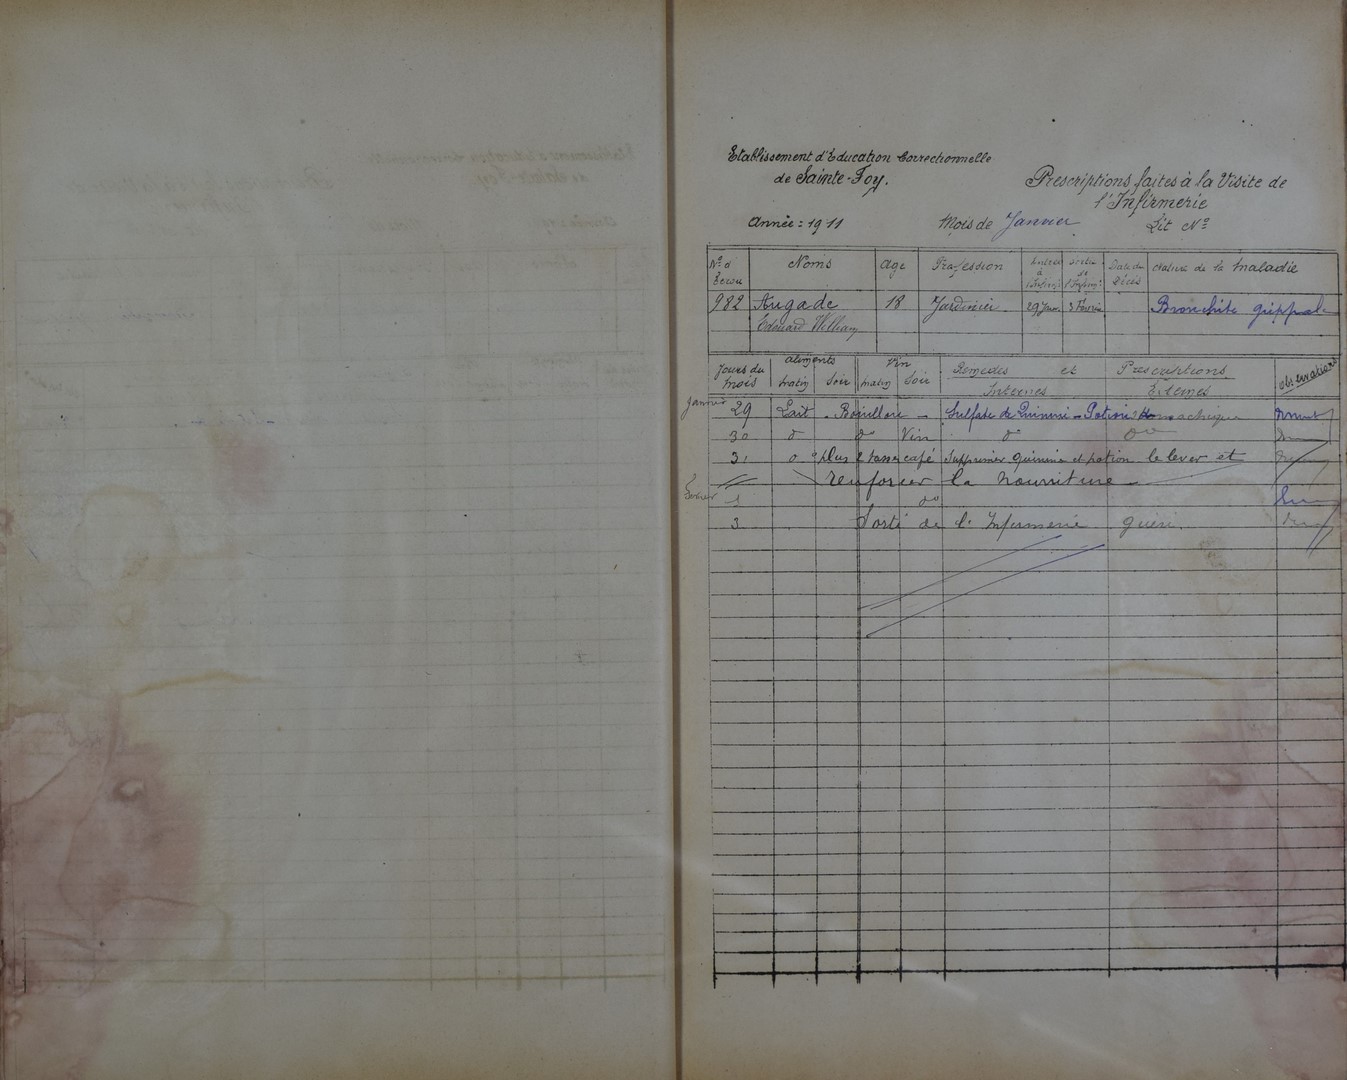 Etablissement d'Education Correctionnelle
de Sainte-Foy.
Prescriptions faites à la Visite de
l'Infirmerie
Année : 1911 Mois de Janvier Lit Nº
Nº d'Ecrou Noms Age Profession Entrée à l'Infirmie Sortie de l'Infirmie Date du Décès Nature de la Maladie
982 Augade 18 Jardinier 29 Janv. 3 Février Bronchite grippale
Edouard William
Jours du Mois Aliments Matin Soir Vin Matin Soir Remèdes et Prescriptions Internes Externes Observations
Janvier 29 Lait - Bouillon - Sulfate de Quinine - Potion
30 do do Vin do do
31 do plus 1 tasse café Supprimer Quinine et potion le lever et
renforcer la Nourriture
Février 1 do
3 Sorti de l'Infirmerie guéri